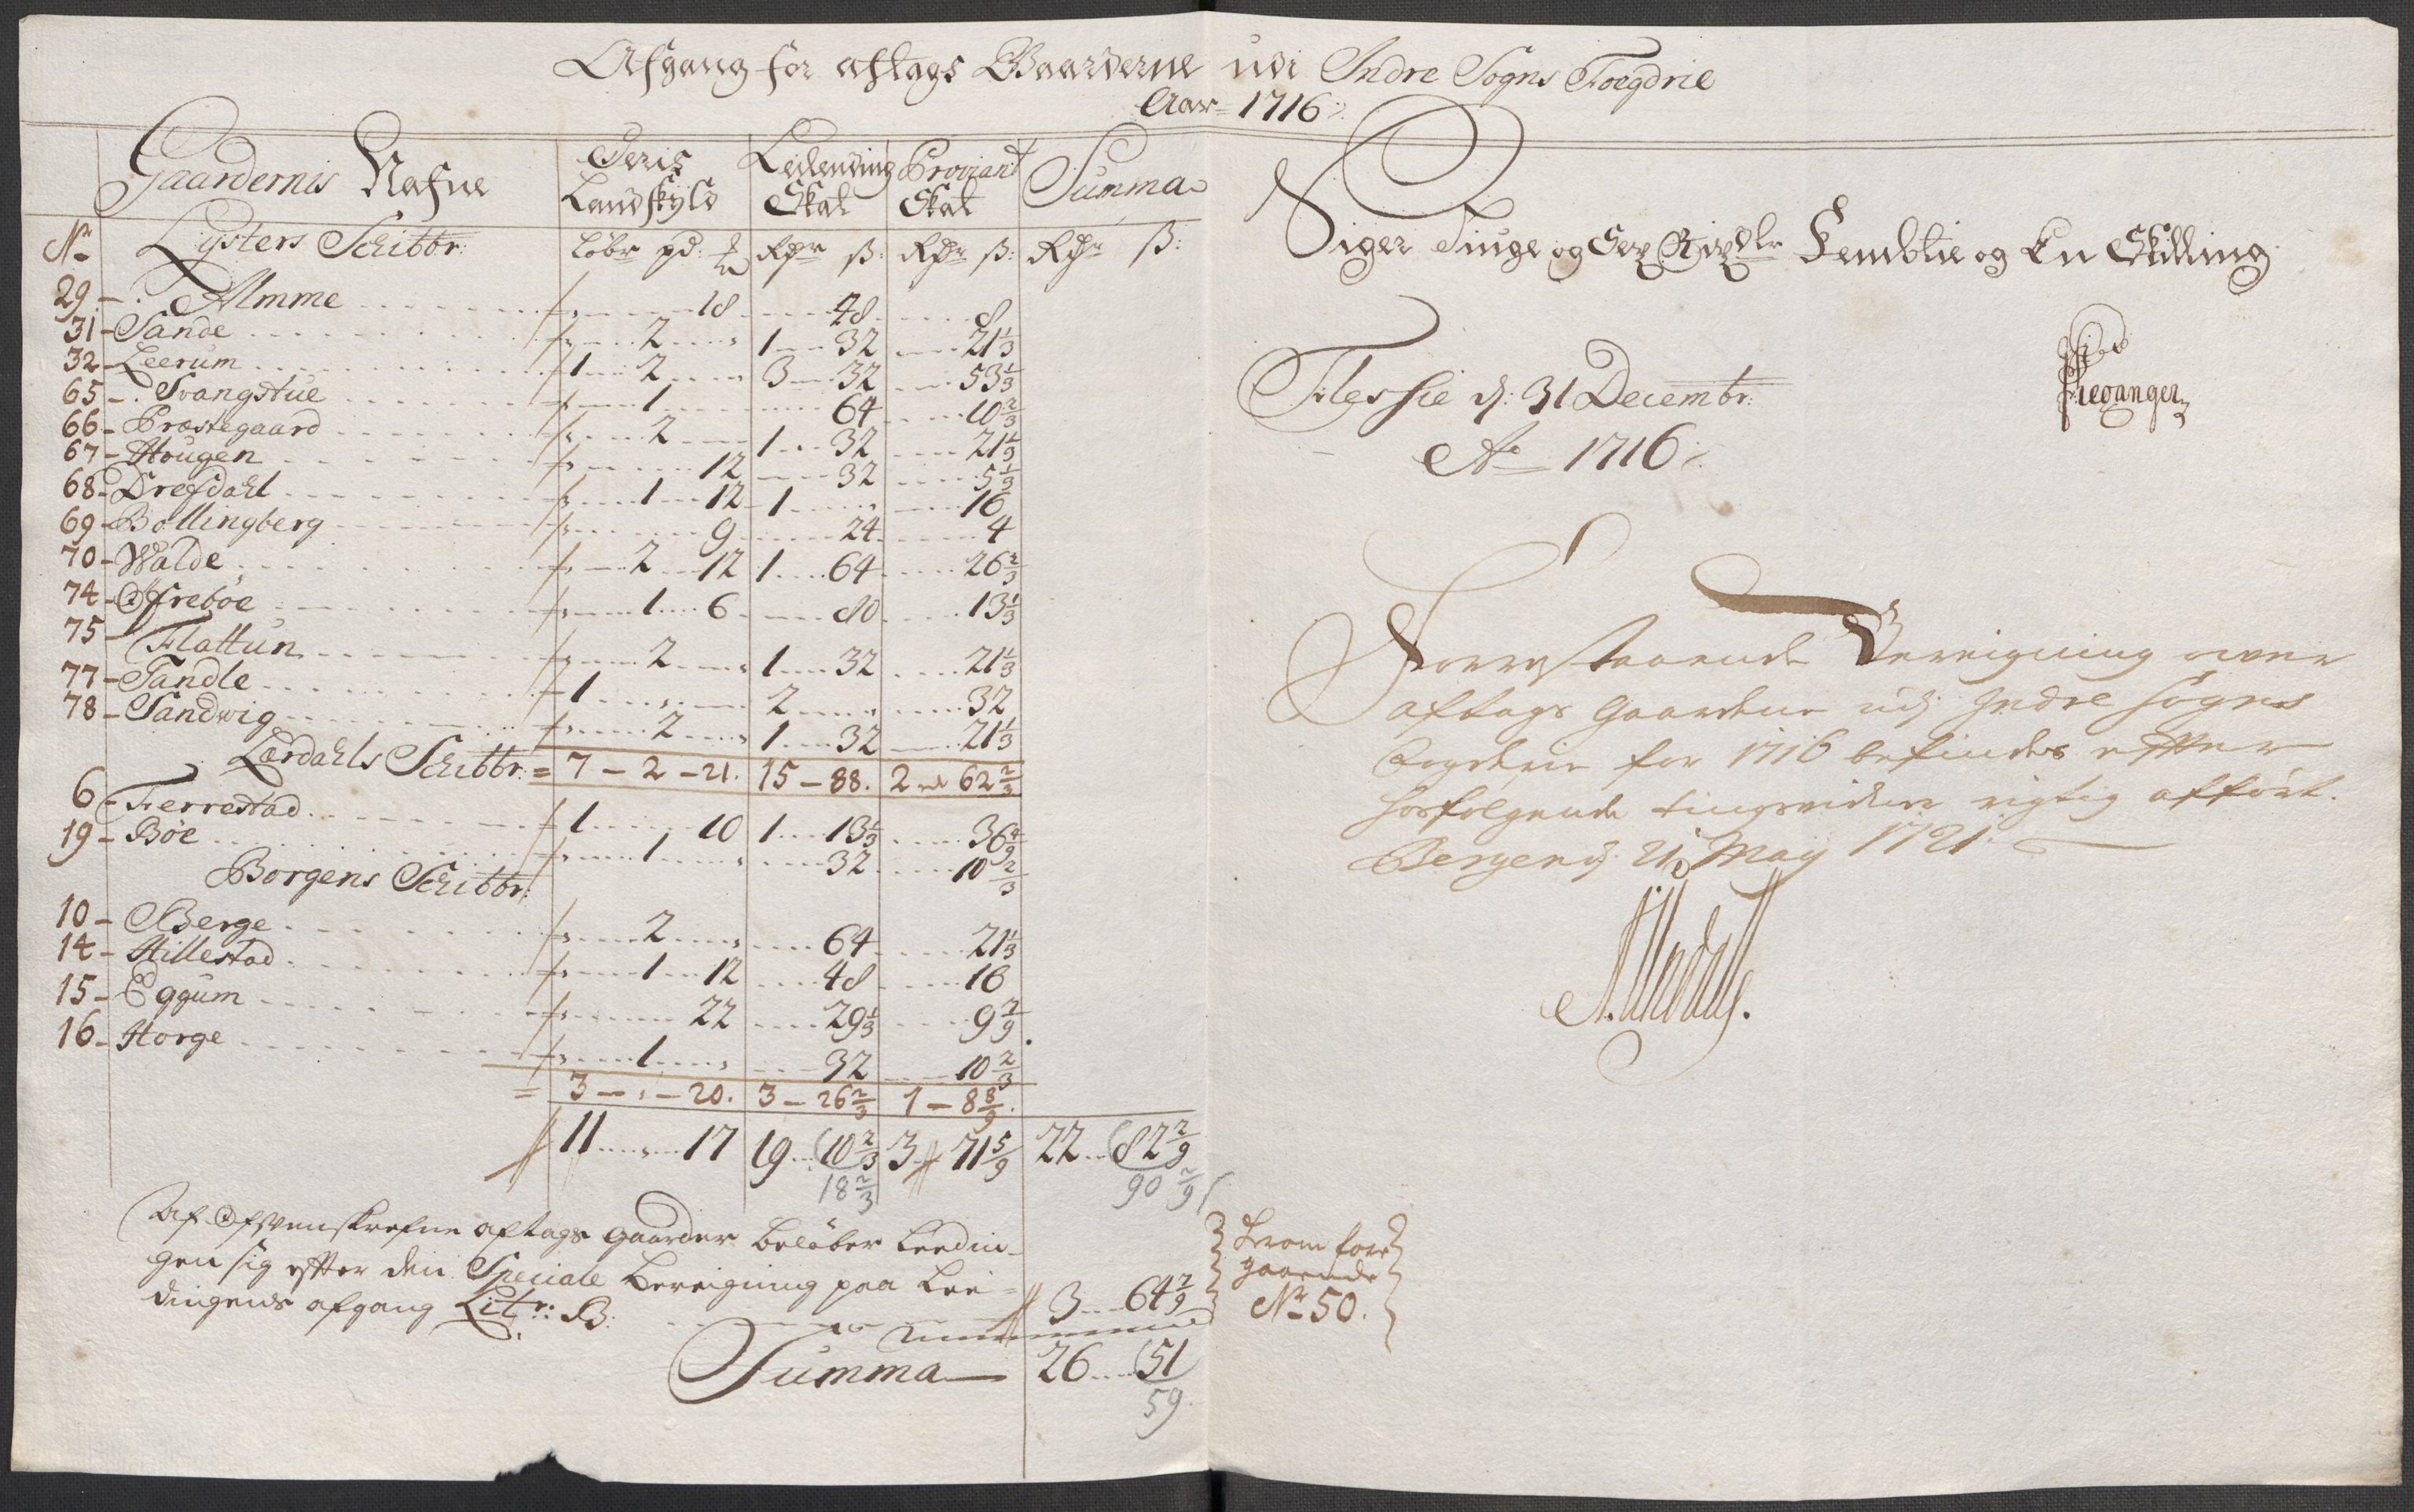 Afgang for aftags Gaarderne udi Indre Sogns Foegdrie
Aar 1716:
Gaardernis Nafne Deris Landskyld Leilending Skat Proviant Skat Summa
Nr Lysters Schibbr: Løbr pd: Rdr ß: Rdr ß: Rdr ß:
29 - Almme 18 48 8
31 - Sande 2 1 32 21 1/3
32 - Leerum 1 2 3 32 53 1/3
65 - Svangstue 1 64 10 2/3
66 - Præstegaard 2 1 32 21 1/3
67 - Hougen 12 32 5 1/3
68 - Drefdahl 1 12 1 16
69 - Bollingberg 9 24 4
70 - Walde 2 12 1 64 26 2/3
74 - Ofreböe 1 6 80 13 1/3
75 - Flattun 2 1 32 21 1/3
77 - Tandle 1 2 32
78 - Sandwig 2 1 32 21 1/3
Lærdahls Schibbr: = 7 - 2 - 21. 15 - 88. 2 - 62 2/3
6 - Fierrestad 1 10 1 13 1/3 36 4/9
19 - Böe 1 32 10 2/3
Borgens Schibbr:
10 - Berge 2 64 21 1/3
14 - Hillestad 1 12 48 16
15 - Eggum 22 29 1/3 9 7/9
16 - Horge 1 32 10 2/3
= 3 - , - 20. 3 - 26 2/3 1 - 8 8/9.
11 17 19 10 2/3 3 71 5/9 22 82 2/9
18 2/3 90 2/9
Af Ofvenskrefne aftags gaarder beløber Leedin-
gen sig efter den Speciale bereigning paa Lee-
dingens afgang Litr: B: 3 64 2/9
Summa 26 51
59
Herom foregaaende
Nr 50.
Siger Tiuge og Sex Rixdlr Femtie og En Skilling
Flessie d: 31 Decembr:
Ao 1716:
Forrestaaende Bereigning over
aftags Gaardene udj Indre Sogns
Fogderie for 1716 befindes efter
hosfølgende tingsvidne rigtig afført.
Bergen d. 21 May 1721.